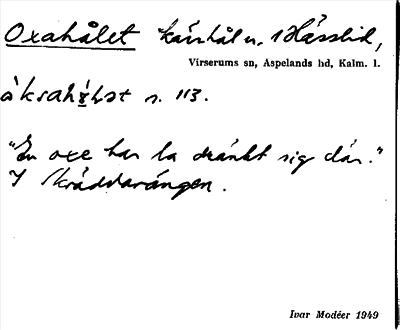 Oxahålet kärrhål n. Hässlid,
Virserums sn, Aspelands hd, Kalm. l.
s. 113.
"En oxe har la dränkt sig där."
I Skräddarängen.
Ivar Modéer 1949